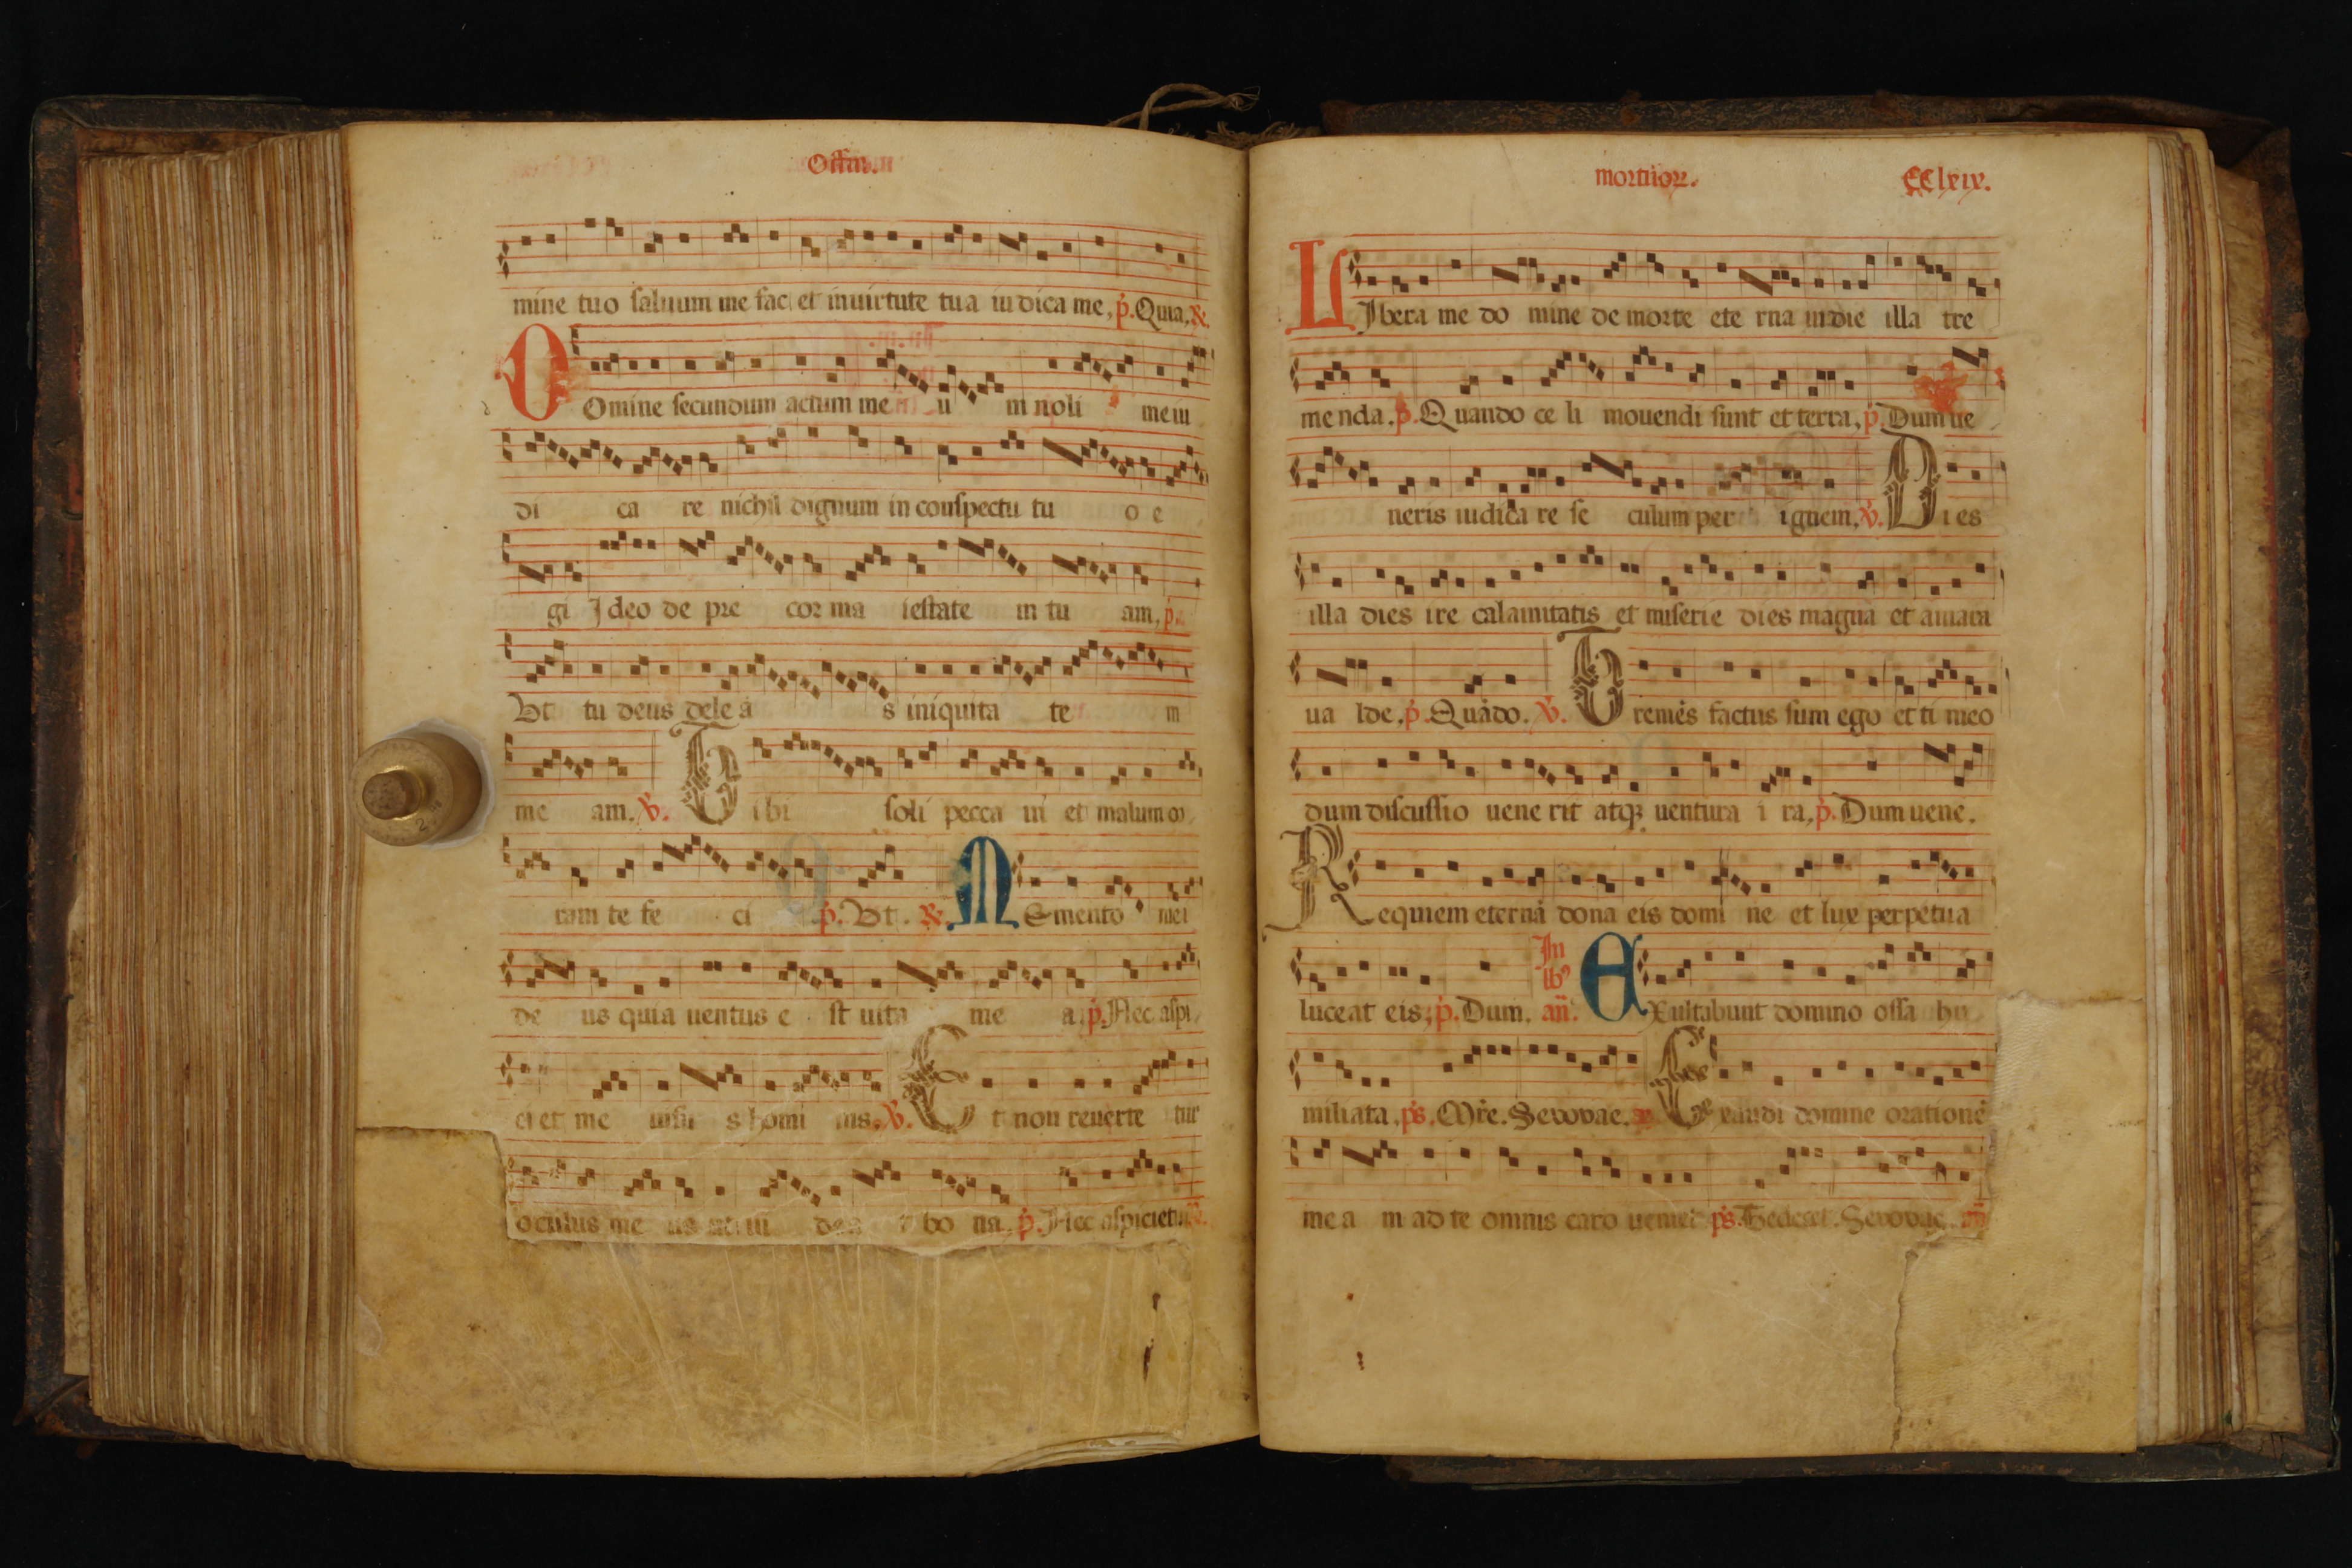 Offin.
mine tuo saluum me fac et in uirtute tua iudica me, p. Quia,
Domine secundum actum me u m noli me iu
di ca re nichil dignum in conspectu tu o e
gi Ideo de pre cor ma iestate in tu am, p.
Vt tu deus dele a s iniquita te m
me am. V. Tibi soli pecca ui et malum co
ram te fe ci p. Vt. R. Memento mei
de us quia uentus e st uita me a p. Nec aspi
ci et me uisu s homi nis. V. Et non reuerte tur
oculus me us ut ui dea t bo na, p. Nec aspiciet
mortuor. CClxix.
Libera me do mine de morte ete rna in die illa tre
me nda. p. Quando ce li mouendi sunt et terra, p. Dum ue
neris iudica re se culum per ignem, V. Dies
illa dies ire calamitatis et miserie dies magna et amara
ua lde, p. Quādo. V. Tremēs factus sum ego et ti meo
dum discussio uene rit atq; uentura i ra, p. Dum uene.
Requiem eternā dona eis domi ne et lux perpetua
In lb⁹
luceat eis, p. Dum, añ. Exultabunt domino ossa hu
miliata, ps. Mr̄e. Seuouae. Exaudi domine orationē
me a m ad te omnis caro ueniet ps. Te decet. Seuouae. añ